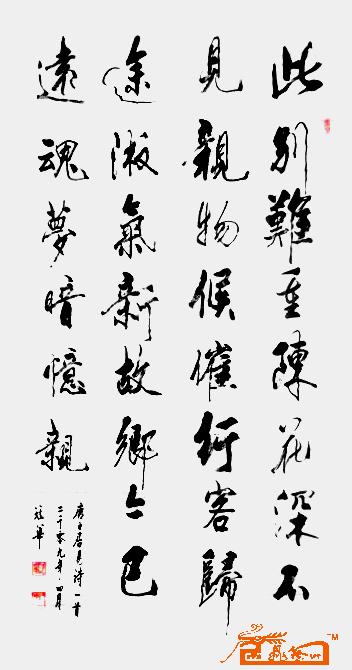 此別難重陳花深不
見親物候催行客歸
途淑氣新故鄉今已
遠魂夢暗憶親
唐白居易詩一首
二千零九年四月